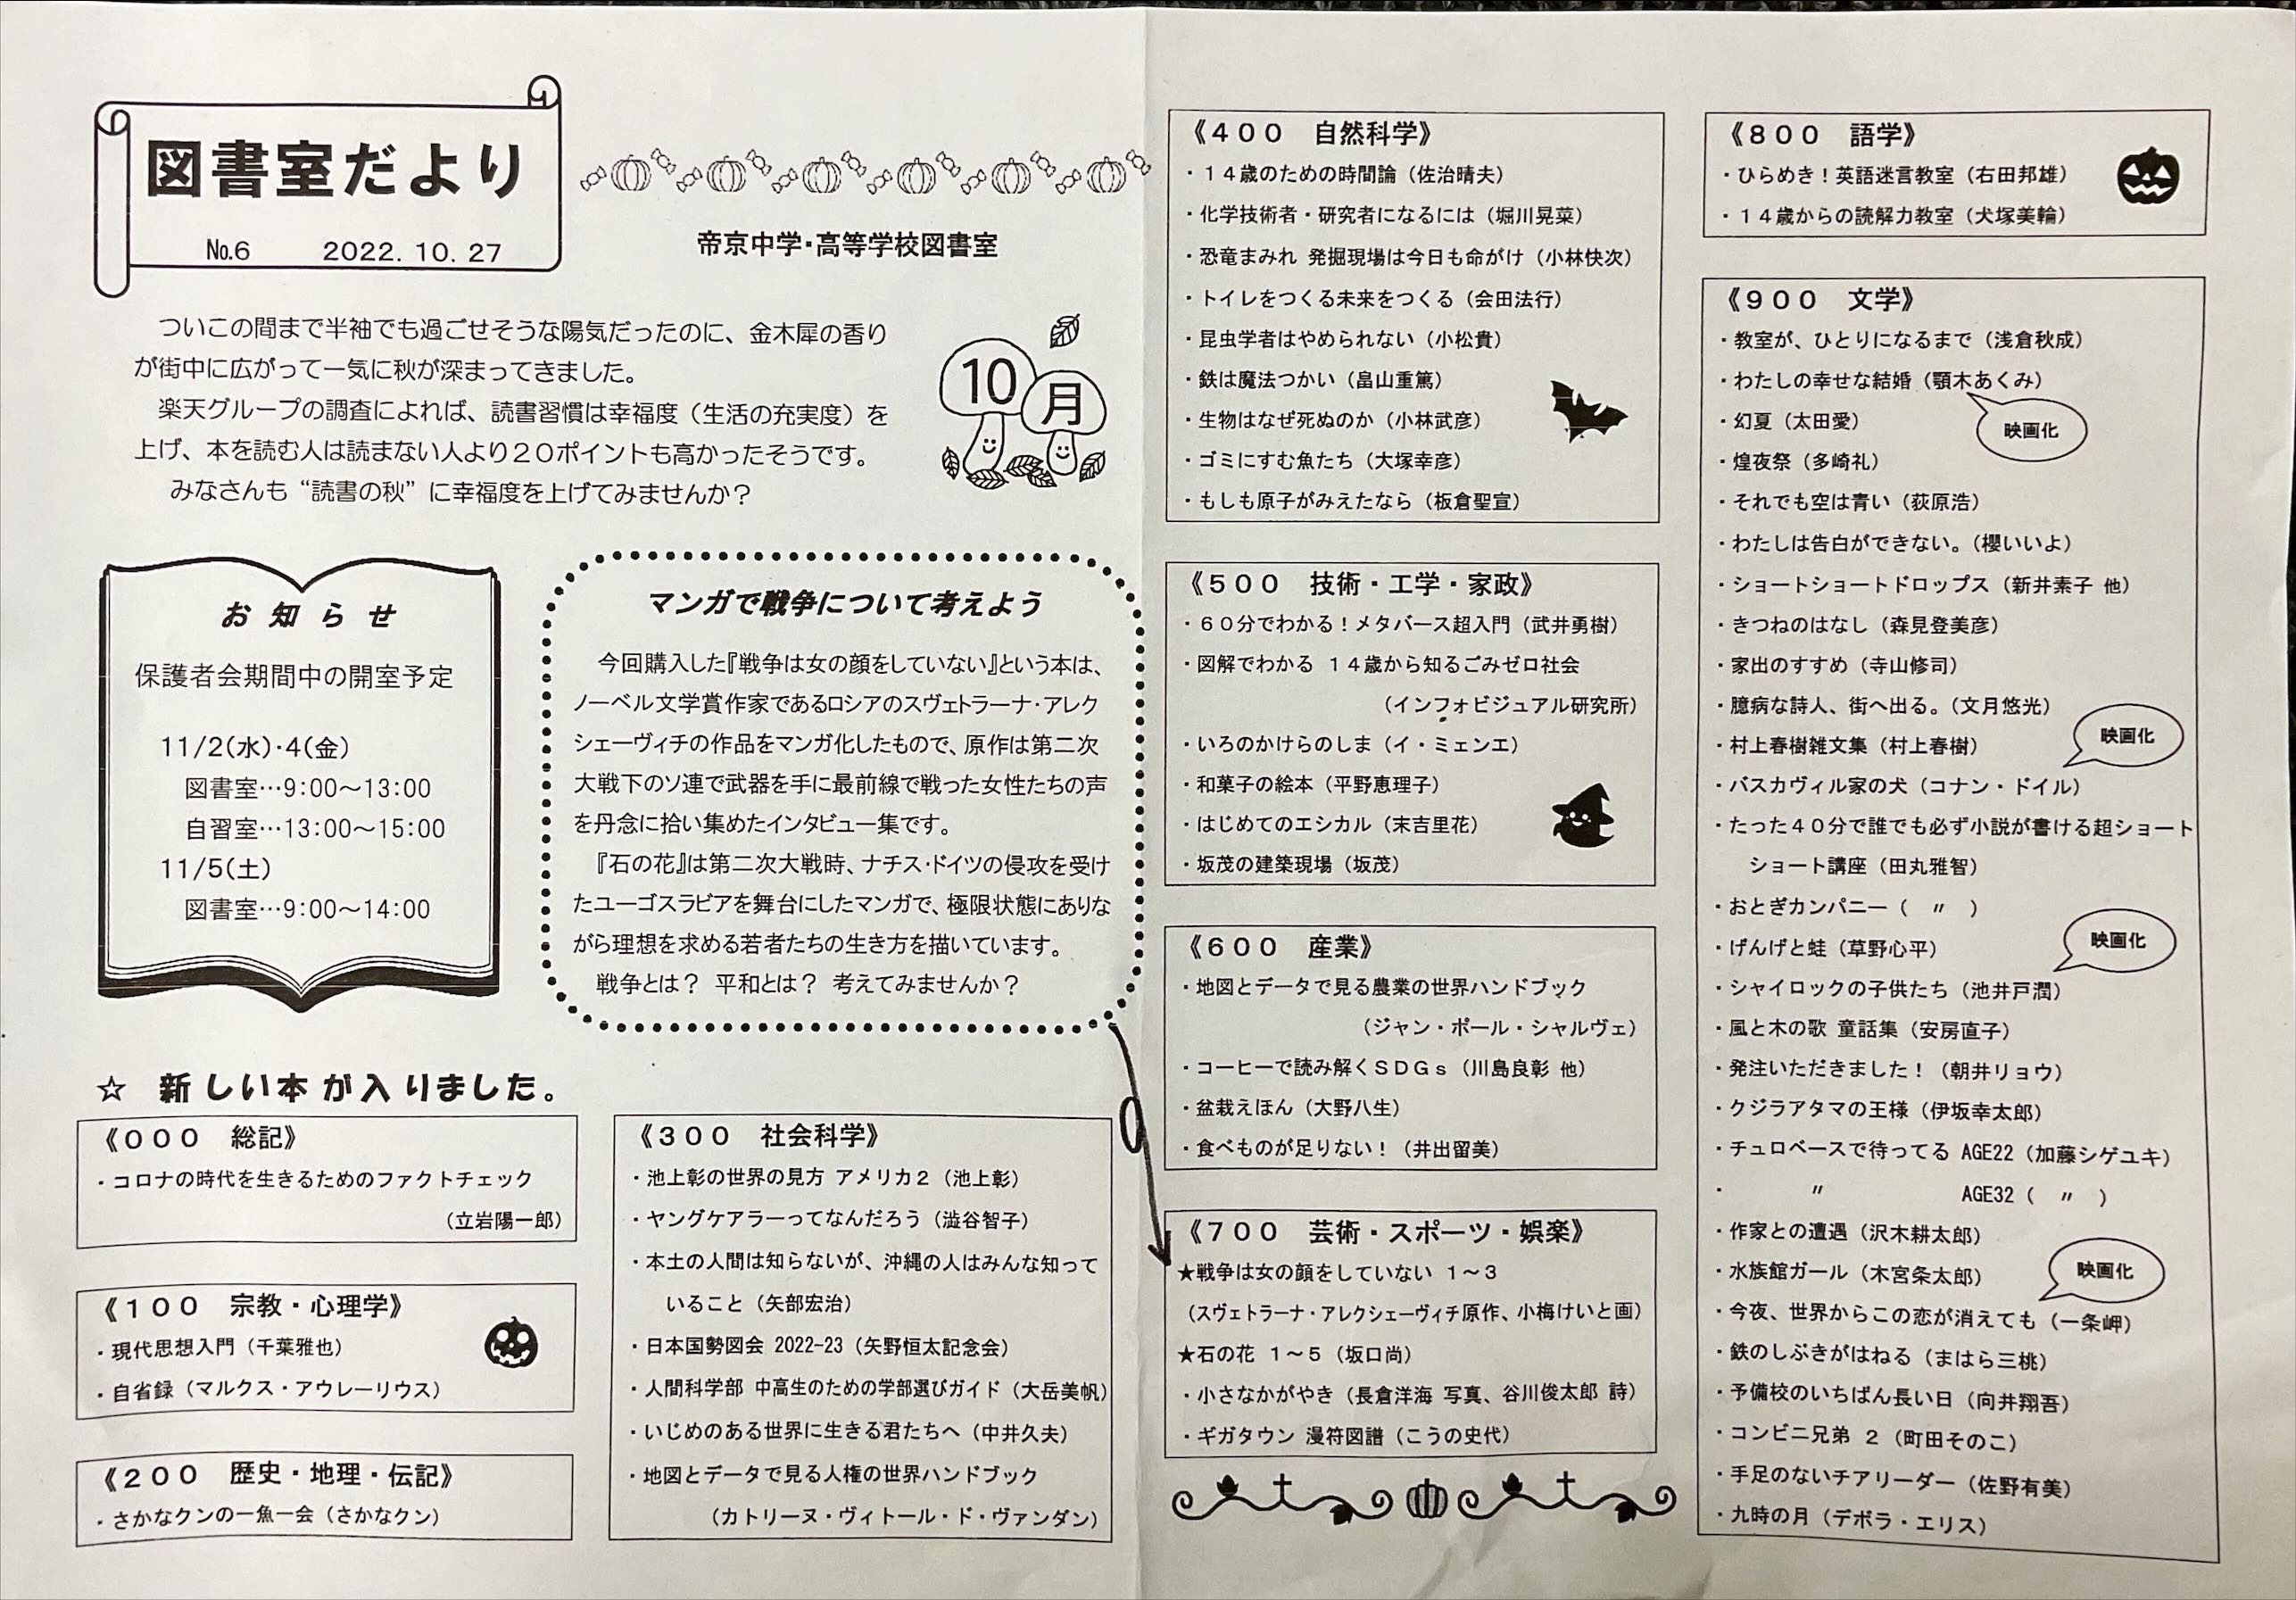 図書室だより
№6　2022.10.27
帝京中学・高等学校図書室
ついこの間まで半袖でも過ごせそうな陽気だったのに、金木犀の香り
が街中に広がって一気に秋が深まってきました。
楽天グループの調査によれば、読書習慣は幸福度（生活の充実度）を
上げ、本を読む人は読まない人より２０ポイントも高かったそうです。
みなさんも “読書の秋” に幸福度を上げてみませんか？
10
月
お知らせ
保護者会期間中の開室予定
11/2(水)・4(金)
図書室…9:00～13:00
自習室…13:00～15:00
11/5(土)
図書室…9:00～14:00
マンガで戦争について考えよう
今回購入した『戦争は女の顔をしていない』という本は、
ノーベル文学賞作家であるロシアのスヴェトラーナ・アレク
シェーヴィチの作品をマンガ化したもので、原作は第二次
大戦下のソ連で武器を手に最前線で戦った女性たちの声
を丹念に拾い集めたインタビュー集です。
『石の花』は第二次大戦時、ナチス・ドイツの侵攻を受け
たユーゴスラビアを舞台にしたマンガで、極限状態にありな
がら理想を求める若者たちの生き方を描いています。
戦争とは？ 平和とは？ 考えてみませんか？
☆ 新しい本が入りました。
《０００　総記》
・コロナの時代を生きるためのファクトチェック
（立岩陽一郎）
《１００　宗教・心理学》
・現代思想入門（千葉雅也）
・自省録（マルクス・アウレーリウス）
《２００　歴史・地理・伝記》
・さかなクンの一魚一会（さかなクン）
《３００　社会科学》
・池上彰の世界の見方 アメリカ２（池上彰）
・ヤングケアラーってなんだろう（澁谷智子）
・本土の人間は知らないが、沖縄の人はみんな知って
いること（矢部宏治）
・日本国勢図会 2022-23（矢野恒太記念会）
・人間科学部 中高生のための学部選びガイド（大岳美帆）
・いじめのある世界に生きる君たちへ（中井久夫）
・地図とデータで見る人権の世界ハンドブック
（カトリーヌ・ヴィトール・ド・ヴァンダン）
《４００　自然科学》
・１４歳のための時間論（佐治晴夫）
・化学技術者・研究者になるには（堀川晃菜）
・恐竜まみれ 発掘現場は今日も命がけ（小林快次）
・トイレをつくる未来をつくる（会田法行）
・昆虫学者はやめられない（小松貴）
・鉄は魔法つかい（畠山重篤）
・生物はなぜ死ぬのか（小林武彦）
・ゴミにすむ魚たち（大塚幸彦）
・もしも原子がみえたなら（板倉聖宣）
《５００　技術・工学・家政》
・６０分でわかる！メタバース超入門（武井勇樹）
・図解でわかる １４歳から知るごみゼロ社会
（インフォビジュアル研究所）
・いろのかけらのしま（イ・ミェンエ）
・和菓子の絵本（平野恵理子）
・はじめてのエシカル（末吉里花）
・坂茂の建築現場（坂茂）
《６００　産業》
・地図とデータで見る農業の世界ハンドブック
（ジャン・ポール・シャルヴェ）
・コーヒーで読み解くＳＤＧｓ（川島良彰 他）
・盆栽えほん（大野八生）
・食べものが足りない！（井出留美）
《７００　芸術・スポーツ・娯楽》
★戦争は女の顔をしていない １～３
（スヴェトラーナ・アレクシェーヴィチ原作、小梅けいと画）
★石の花 １～５（坂口尚）
・小さなかがやき（長倉洋海 写真、谷川俊太郎 詩）
・ギガタウン 漫符図譜（こうの史代）
《８００　語学》
・ひらめき！英語迷言教室（右田邦雄）
・１４歳からの読解力教室（犬塚美輪）
《９００　文学》
・教室が、ひとりになるまで（浅倉秋成）
・わたしの幸せな結婚（顎木あくみ）
・幻夏（太田愛）
映画化
・煌夜祭（多崎礼）
・それでも空は青い（荻原浩）
・わたしは告白ができない。（櫻いいよ）
・ショートショートドロップス（新井素子 他）
・きつねのはなし（森見登美彦）
・家出のすすめ（寺山修司）
・臆病な詩人、街へ出る。（文月悠光）
・村上春樹雑文集（村上春樹）
映画化
・バスカヴィル家の犬（コナン・ドイル）
・たった４０分で誰でも必ず小説が書ける超ショート
ショート講座（田丸雅智）
・おとぎカンパニー（　〃　）
・げんげと蛙（草野心平）
映画化
・シャイロックの子供たち（池井戸潤）
・風と木の歌 童話集（安房直子）
・発注いただきました！（朝井リョウ）
・クジラアタマの王様（伊坂幸太郎）
・チュロベースで待ってる AGE22（加藤シゲユキ）
・　〃　AGE32（　〃　）
・作家との遭遇（沢木耕太郎）
・水族館ガール（木宮条太郎）
映画化
・今夜、世界からこの恋が消えても（一条岬）
・鉄のしぶきがはねる（まはら三桃）
・予備校のいちばん長い日（向井翔吾）
・コンビニ兄弟 ２（町田そのこ）
・手足のないチアリーダー（佐野有美）
・九時の月（デボラ・エリス）